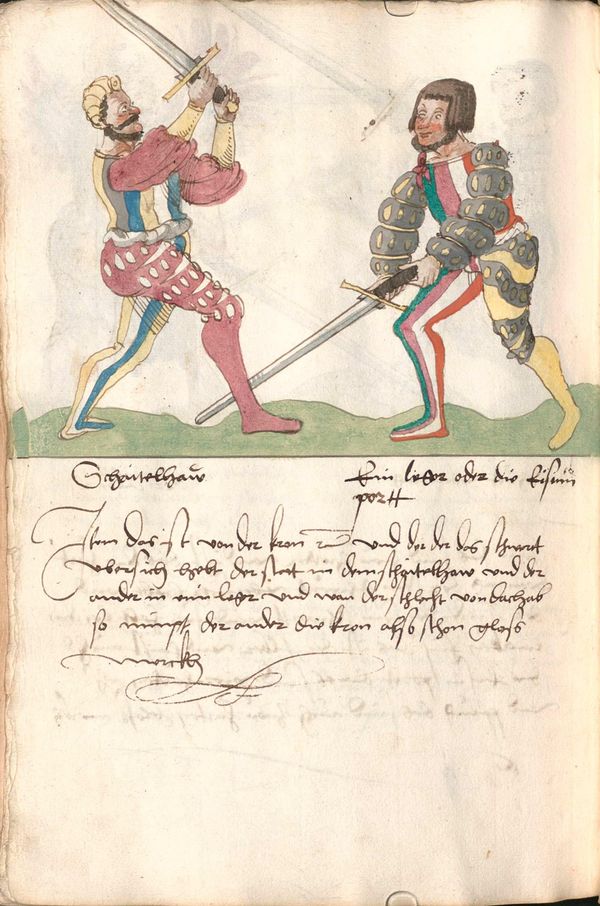 Schaitelhaw
Ein leger oder die Eisnin
portt
Item das ist von der kron und der der das schwert
ubersich hebt der stat in dem schaitelhaw und der
ander in ein leger und wan der schlecht von dach ab
so nimpt der ander die kron also schon gloss
Merckh